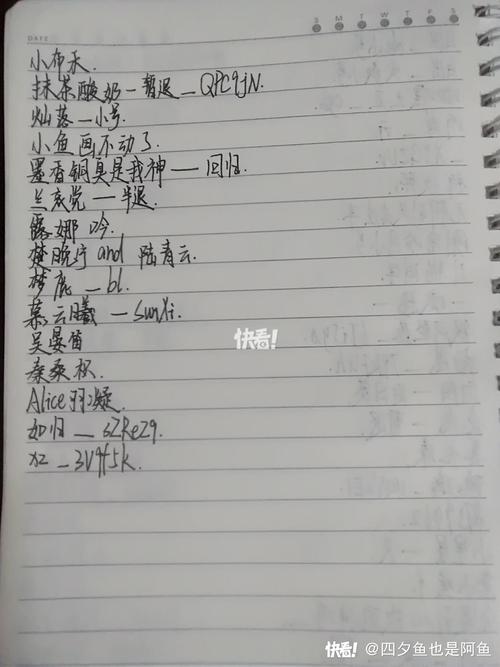 DATE
S M T W T F S
小布天.
抹茶酸奶一暂退_QPC9jN.
灿落_小号.
小鱼画不动了.
墨香铜臭是我神——回归.
兰底党一半退.
露娜吟.
楚晚宁 and 陆青云.
梦鹿_bl.
慕云曦—Sunxi.
吴晏笛
秦桑枳.
Alice羽凝.
如归_sZReZ9.
_3V9f5k.
快看!
快看! @四夕鱼也是阿鱼